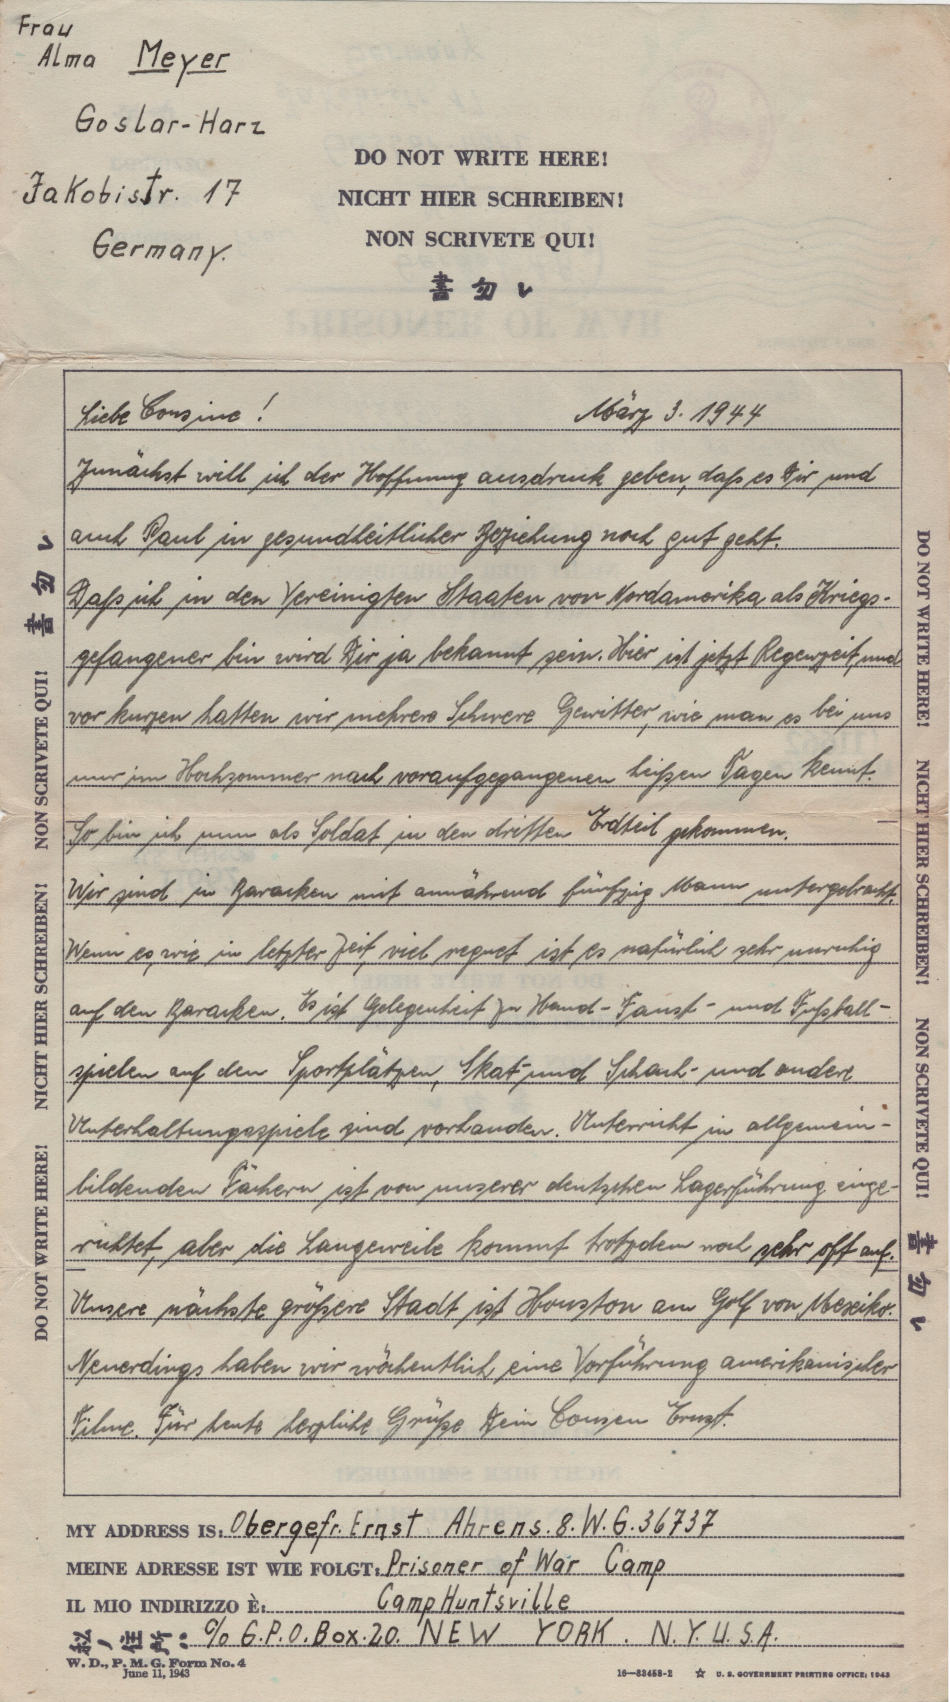 Frau
Alma Meyer
Goslar-Harz
Jakobistr. 17
Germany.
DO NOT WRITE HERE!
NICHT HIER SCHREIBEN!
NON SCRIVETE QUI!
書勿レ
Liebe Cousine! März 3. 1944
Zunächst will ich der Hoffnung ausdruck geben, daß es Dir, und
auch Paul in gesundheitlicher Beziehung noch gut geht.
Daß ich in den Vereinigten Staaten von Nordamerika als Kriegs-
gefangener bin wird Dir ja bekannt sein. Hier ist jetzt Regenzeit, und
vor kurzen hatten wir mehrere Schwere Gewitter, wie man es bei uns
nur im Hochsommer nach voraufgegangenen heißen Tagen kennt.
So bin ich nun als Soldat in den dritten Erdteil gekommen.
Wir sind in Baracken mit annährend fünfzig Mann untergebracht.
Wenn es, wie in letzter Zeit, viel regnet ist es natürlich sehr unruhig
auf den Baracken. Es ist Gelegenheit zu Hand- Faust- und Fußball-
spielen auf den Sportplätzen, Skat- und Schach- und andere
Unterhaltungsspiele sind vorhanden. Unterricht in allgemein-
bildenden Fächern ist von unserer deutschen Lagerführung einge-
richtet, aber die Langeweile kommt trotzdem noch sehr oft auf.
Unsere nächste größere Stadt ist Houston am Golf von Mexiko.
Neuerdings haben wir wöchentlich eine Vorführung amerikanischer
Filme. Für heute herzliche Grüße Dein Cousen Ernst.
DO NOT WRITE HERE! NICHT HIER SCHREIBEN! NON SCRIVETE QUI! 書勿レ
DO NOT WRITE HERE! NICHT HIER SCHREIBEN! NON SCRIVETE QUI! 書勿レ
MY ADDRESS IS: Obergefr. Ernst Ahrens. 8. W. G. 36737
MEINE ADRESSE IST WIE FOLGT: Prisoner of War Camp
IL MIO INDIRIZZO È: Camp Huntsville
私ノ住所ハ: c/o G.P.O. Box. 20. NEW YORK. N.Y. U.S.A.
W. D., P. M. G. Form No. 4
June 11, 1943
16—33458-2 ☆ U. S. GOVERNMENT PRINTING OFFICE: 1943